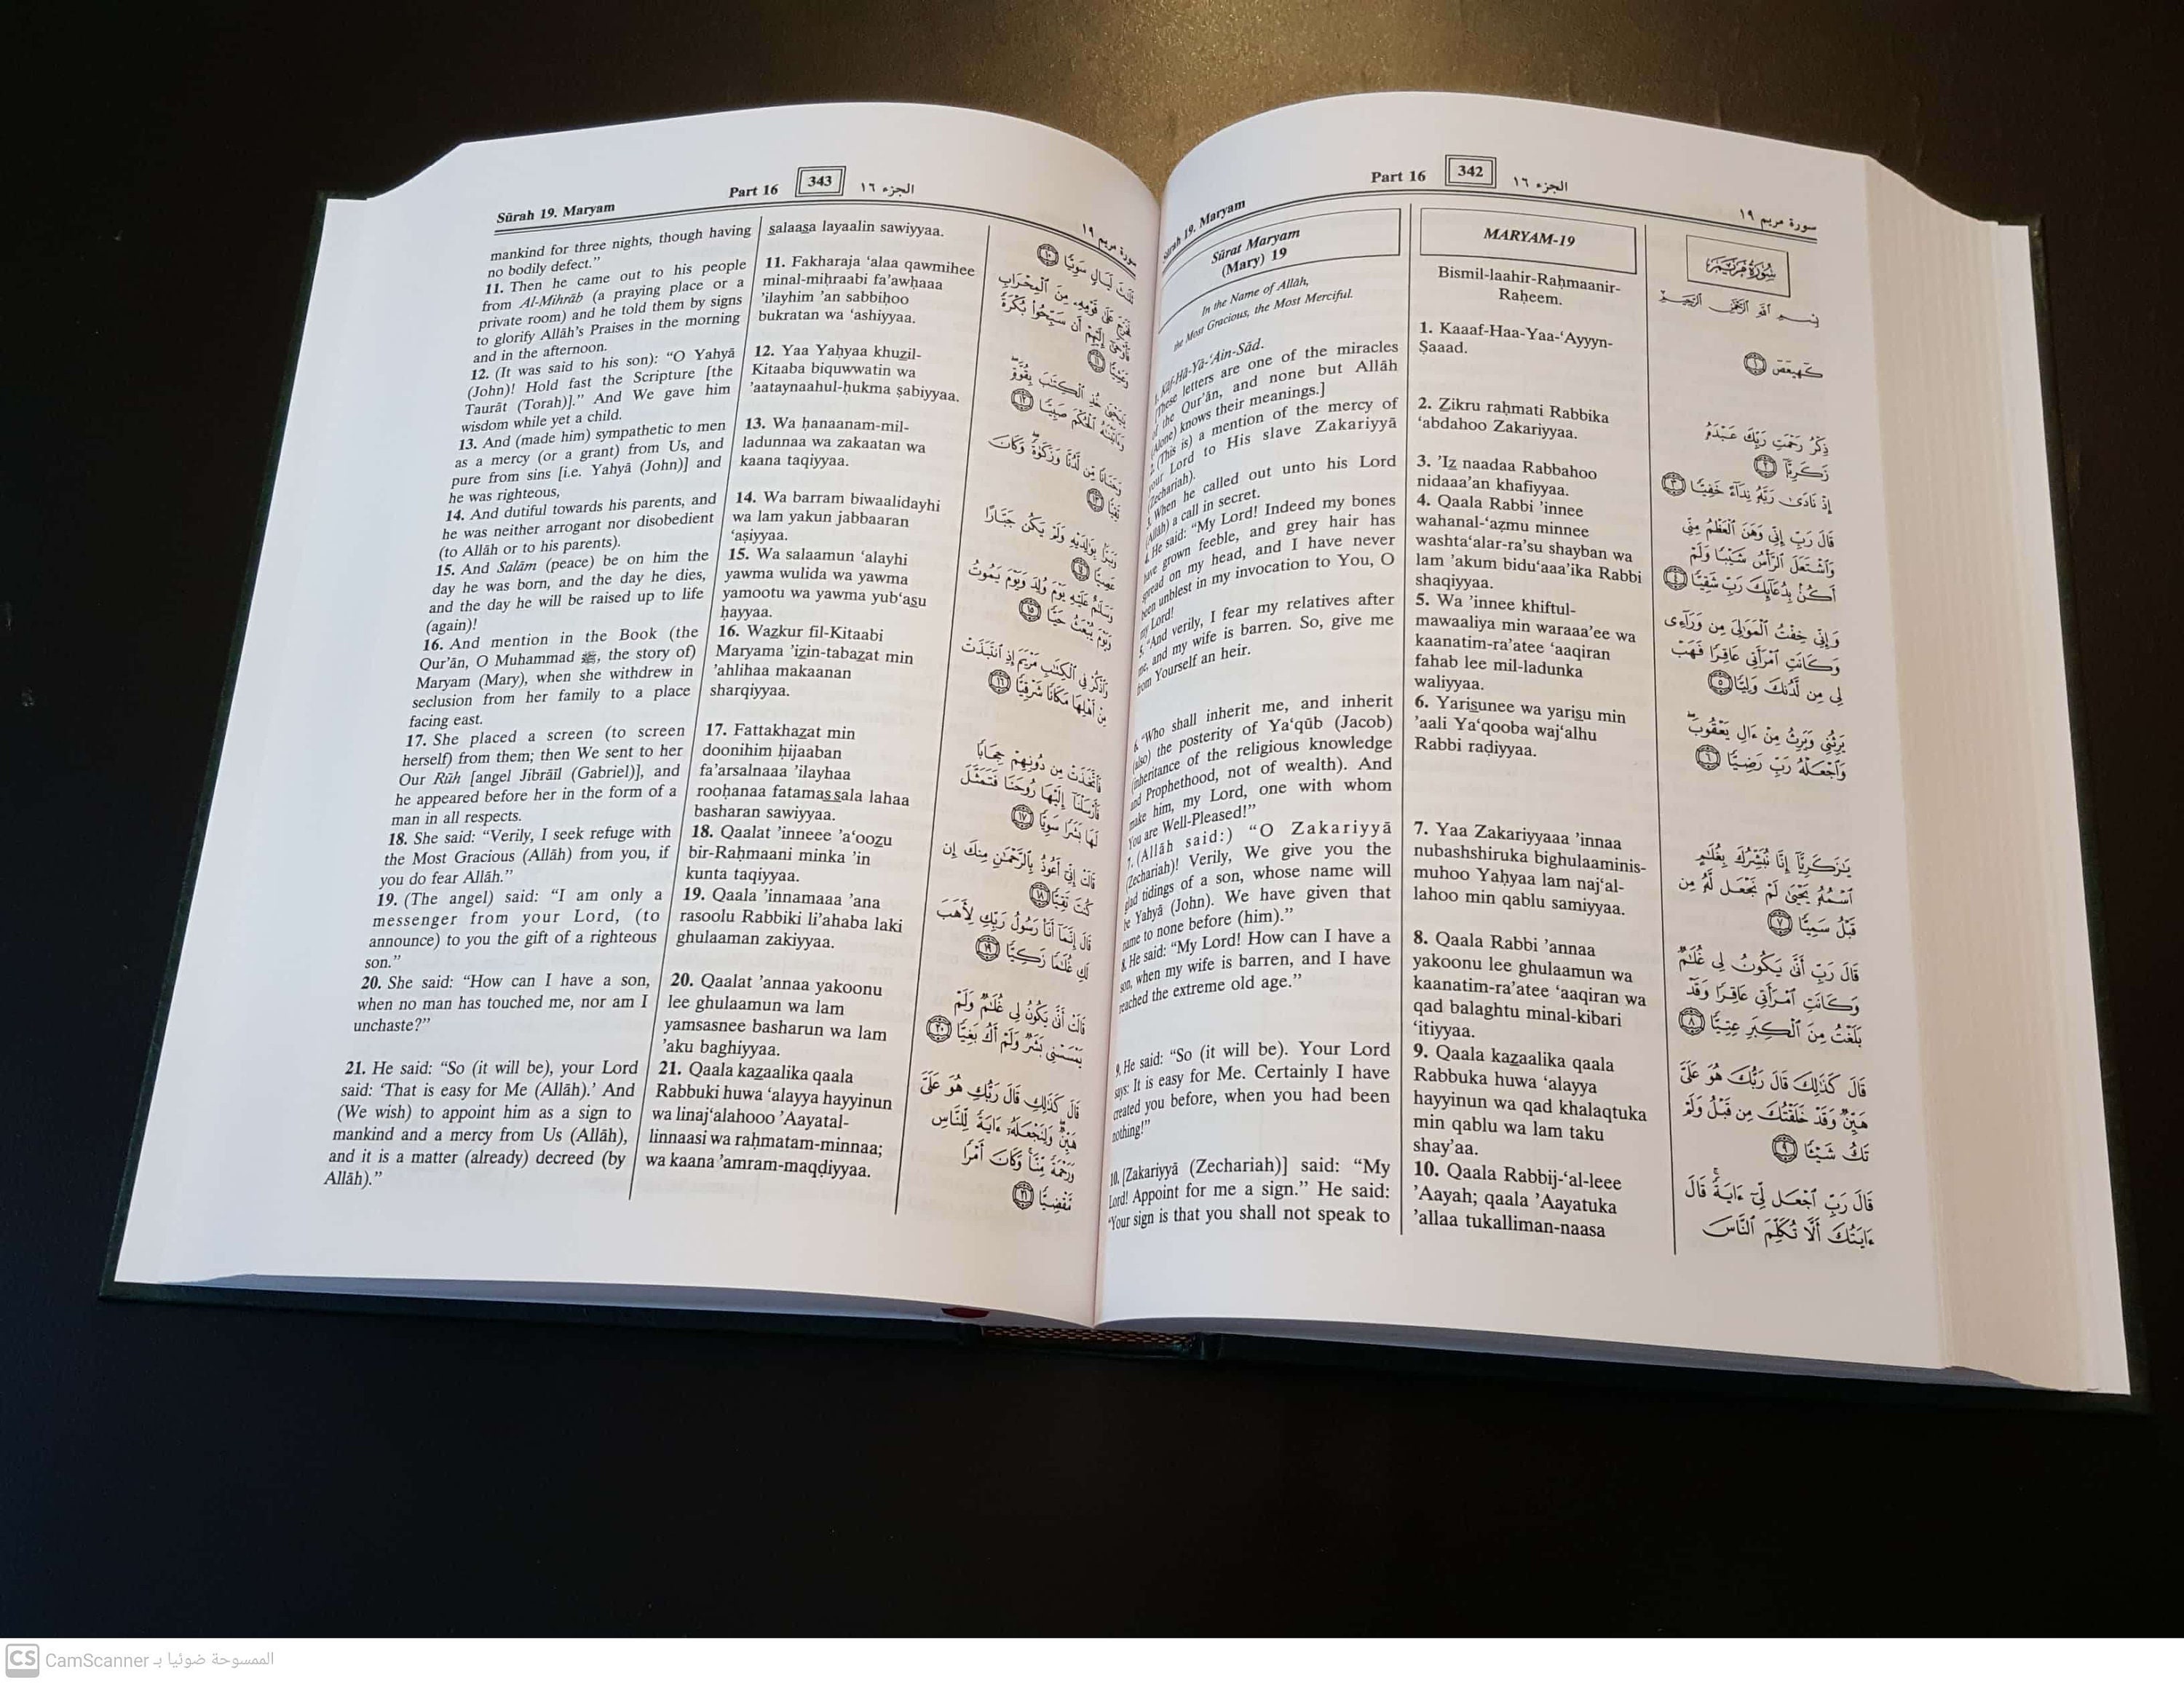 Sūrah 19. Maryam
Part 16
342
الجزء ١٦
سورة مريم ١٩
Sūrat Maryam
(Mary) 19
In the Name of Allāh,
the Most Gracious, the Most Merciful.
1. Kāf-Hā-Yā-‘Ain-Sād.
[These letters are one of the miracles
of the Qur’ān, and none but Allāh
(Alone) knows their meanings.]
2. (This is) a mention of the mercy of
your Lord to His slave Zakariyyā
(Zechariah).
3. When he called out unto his Lord
(Allāh) a call in secret.
4. He said: “My Lord! Indeed my bones
have grown feeble, and grey hair has
spread on my head, and I have never
been unblest in my invocation to You, O
my Lord!
5. “And verily, I fear my relatives after
me, and my wife is barren. So, give me
from Yourself an heir.
6. “Who shall inherit me, and inherit
(also) the posterity of Ya‘qūb (Jacob)
(inheritance of the religious knowledge
and Prophethood, not of wealth). And
make him, my Lord, one with whom
You are Well-Pleased!”
7. (Allāh said:) “O Zakariyyā
(Zechariah)! Verily, We give you the
glad tidings of a son, whose name will
be Yahyā (John). We have given that
name to none before (him).”
8. He said: “My Lord! How can I have a
son, when my wife is barren, and I have
reached the extreme old age.”
9. He said: “So (it will be). Your Lord
says: It is easy for Me. Certainly I have
created you before, when you had been
nothing!”
10. [Zakariyyā (Zechariah)] said: “My
Lord! Appoint for me a sign.” He said:
“Your sign is that you shall not speak to
MARYAM-19
Bismil-laahir-Raḥmaanir-
Raḥeem.
1. Kaaaf-Haa-Yaa-‘Ayyyn-
Ṣaaad.
2. Zikru raḥmati Rabbika
‘abdahoo Zakariyyaa.
3. ’Iz naadaa Rabbahoo
nidaaa’an khafiyyaa.
4. Qaala Rabbi ’innee
wahanal-‘aẓmu minnee
washta‘alar-ra’su shayban wa
lam ’akum bidu‘aaa’ika Rabbi
shaqiyyaa.
5. Wa ’innee khiftul-
mawaaliya min waraaa’ee wa
kaanatim-ra’atee ‘aaqiran
fahab lee mil-ladunka
waliyyaa.
6. Yarisunee wa yarisu min
’aali Ya‘qooba waj‘alhu
Rabbi raḍiyyaa.
7. Yaa Zakariyyaaa ’innaa
nubashshiruka bighulaaminis-
muhoo Yaḥyaa lam naj‘al-
lahoo min qablu samiyyaa.
8. Qaala Rabbi ’annaa
yakoonu lee ghulaamun wa
kaanatim-ra’atee ‘aaqiran wa
qad balaghtu minal-kibari
‘itiyyaa.
9. Qaala kazaalika qaala
Rabbuka huwa ‘alayya
hayyinun wa qad khalaqtuka
min qablu wa lam taku
shay’aa.
10. Qaala Rabbij-‘al-leee
’Aayah; qaala ’Aayatuka
’allaa tukalliman-naasa
سُورَةُ مَرْيَمَ
بِسْمِ ٱللَّهِ ٱلرَّحْمَٰنِ ٱلرَّحِيمِ
كٓهيعٓصٓ ١
ذِكْرُ رَحْمَتِ رَبِّكَ عَبْدَهُۥ
زَكَرِيَّآ ٢
إِذْ نَادَىٰ رَبَّهُۥ نِدَآءً خَفِيًّا ٣
قَالَ رَبِّ إِنِّى وَهَنَ ٱلْعَظْمُ مِنِّى
وَٱشْتَعَلَ ٱلرَّأْسُ شَيْبًا وَلَمْ
أَكُنۢ بِدُعَآئِكَ رَبِّ شَقِيًّا ٤
وَإِنِّى خِفْتُ ٱلْمَوَٰلِىَ مِن وَرَآءِى
وَكَانَتِ ٱمْرَأَتِى عَاقِرًا فَهَبْ
لِى مِن لَّدُنكَ وَلِيًّا ٥
يَرِثُنِى وَيَرِثُ مِنْ ءَالِ يَعْقُوبَ ۖ
وَٱجْعَلْهُ رَبِّ رَضِيًّا ٦
يَٰزَكَرِيَّآ إِنَّا نُبَشِّرُكَ بِغُلَٰمٍ
ٱسْمُهُۥ يَحْيَىٰ لَمْ نَجْعَل لَّهُۥ مِن
قَبْلُ سَمِيًّا ٧
قَالَ رَبِّ أَنَّىٰ يَكُونُ لِى غُلَٰمٌ
وَكَانَتِ ٱمْرَأَتِى عَاقِرًا وَقَدْ
بَلَغْتُ مِنَ ٱلْكِبَرِ عِتِيًّا ٨
قَالَ كَذَٰلِكَ قَالَ رَبُّكَ هُوَ عَلَىَّ
هَيِّنٌ وَقَدْ خَلَقْتُكَ مِن قَبْلُ وَلَمْ
تَكُ شَيْـًٔا ٩
قَالَ رَبِّ ٱجْعَل لِّىٓ ءَايَةً ۚ قَالَ
ءَايَتُكَ أَلَّا تُكَلِّمَ ٱلنَّاسَ
Sūrah 19. Maryam
Part 16
343
الجزء ١٦
سورة مريم ١٩
mankind for three nights, though having
no bodily defect.”
11. Then he came out to his people
from Al-Mihrāb (a praying place or a
private room) and he told them by signs
to glorify Allāh’s Praises in the morning
and in the afternoon.
12. (It was said to his son): “O Yahyā
(John)! Hold fast the Scripture [the
Taurāt (Torah)].” And We gave him
wisdom while yet a child.
13. And (made him) sympathetic to men
as a mercy (or a grant) from Us, and
pure from sins [i.e. Yahyā (John)] and
he was righteous,
14. And dutiful towards his parents, and
he was neither arrogant nor disobedient
(to Allāh or to his parents).
15. And Salām (peace) be on him the
day he was born, and the day he dies,
and the day he will be raised up to life
(again)!
16. And mention in the Book (the
Qur’ān, O Muhammad ﷺ, the story of)
Maryam (Mary), when she withdrew in
seclusion from her family to a place
facing east.
17. She placed a screen (to screen
herself) from them; then We sent to her
Our Rūh [angel Jibrāīl (Gabriel)], and
he appeared before her in the form of a
man in all respects.
18. She said: “Verily, I seek refuge with
the Most Gracious (Allāh) from you, if
you do fear Allāh.”
19. (The angel) said: “I am only a
messenger from your Lord, (to
announce) to you the gift of a righteous
son.”
20. She said: “How can I have a son,
when no man has touched me, nor am I
unchaste?”
21. He said: “So (it will be), your Lord
said: ‘That is easy for Me (Allāh).’ And
(We wish) to appoint him as a sign to
mankind and a mercy from Us (Allāh),
and it is a matter (already) decreed (by
Allāh).”
salaasa layaalin sawiyyaa.
11. Fakharaja ‘alaa qawmihee
minal-miḥraabi fa’awḥaaa
’ilayhim ’an sabbiḥoo
bukratan wa ‘ashiyyaa.
12. Yaa Yaḥyaa khuzil-
Kitaaba biquwwatin wa
’aataynaahul-ḥukma ṣabiyyaa.
13. Wa ḥanaanam-mil-
ladunnaa wa zakaatan wa
kaana taqiyyaa.
14. Wa barram biwaalidayhi
wa lam yakun jabbaaran
‘aṣiyyaa.
15. Wa salaamun ‘alayhi
yawma wulida wa yawma
yamootu wa yawma yub‘asu
ḥayyaa.
16. Wazkur fil-Kitaabi
Maryama ’izin-tabazat min
’ahlihaa makaanan
sharqiyyaa.
17. Fattakhazat min
doonihim ḥijaaban
fa’arsalnaaa ’ilayhaa
rooḥanaa fatamassala lahaa
basharan sawiyyaa.
18. Qaalat ’inneee ’a‘oozu
bir-Raḥmaani minka ’in
kunta taqiyyaa.
19. Qaala ’innamaaa ’ana
rasoolu Rabbiki li’ahaba laki
ghulaaman zakiyyaa.
20. Qaalat ’annaa yakoonu
lee ghulaamun wa lam
yamsasnee basharun wa lam
’aku baghiyyaa.
21. Qaala kazaalika qaala
Rabbuki huwa ‘alayya hayyinun
wa linaj‘alahooo ’Aayatal-
linnaasi wa raḥmatam-minnaa;
wa kaana ’amram-maqḍiyyaa.
ثَلَٰثَ لَيَالٍ سَوِيًّا ١٠
فَخَرَجَ عَلَىٰ قَوْمِهِۦ مِنَ ٱلْمِحْرَابِ
فَأَوْحَىٰٓ إِلَيْهِمْ أَن سَبِّحُوا۟ بُكْرَةً
وَعَشِيًّا ١١
يَٰيَحْيَىٰ خُذِ ٱلْكِتَٰبَ بِقُوَّةٍ ۖ
وَءَاتَيْنَٰهُ ٱلْحُكْمَ صَبِيًّا ١٢
وَحَنَانًا مِّن لَّدُنَّا وَزَكَوٰةً ۖ وَكَانَ
تَقِيًّا ١٣
وَبَرًّۢا بِوَٰلِدَيْهِ وَلَمْ يَكُن جَبَّارًا
عَصِيًّا ١٤
وَسَلَٰمٌ عَلَيْهِ يَوْمَ وُلِدَ وَيَوْمَ يَمُوتُ
وَيَوْمَ يُبْعَثُ حَيًّا ١٥
وَٱذْكُرْ فِى ٱلْكِتَٰبِ مَرْيَمَ إِذِ ٱنتَبَذَتْ
مِنْ أَهْلِهَا مَكَانًا شَرْقِيًّا ١٦
فَٱتَّخَذَتْ مِن دُونِهِمْ حِجَابًا
فَأَرْسَلْنَآ إِلَيْهَا رُوحَنَا فَتَمَثَّلَ
لَهَا بَشَرًا سَوِيًّا ١٧
قَالَتْ إِنِّىٓ أَعُوذُ بِٱلرَّحْمَٰنِ مِنكَ إِن
كُنتَ تَقِيًّا ١٨
قَالَ إِنَّمَآ أَنَا۠ رَسُولُ رَبِّكِ لِأَهَبَ
لَكِ غُلَٰمًا زَكِيًّا ١٩
قَالَتْ أَنَّىٰ يَكُونُ لِى غُلَٰمٌ وَلَمْ
يَمْسَسْنِى بَشَرٌ وَلَمْ أَكُ بَغِيًّا ٢٠
قَالَ كَذَٰلِكِ قَالَ رَبُّكِ هُوَ عَلَىَّ
هَيِّنٌ ۖ وَلِنَجْعَلَهُۥٓ ءَايَةً لِّلنَّاسِ
وَرَحْمَةً مِّنَّا ۚ وَكَانَ أَمْرًا
مَّقْضِيًّا ٢١
CS CamScanner الممسوحة ضوئيا بـ